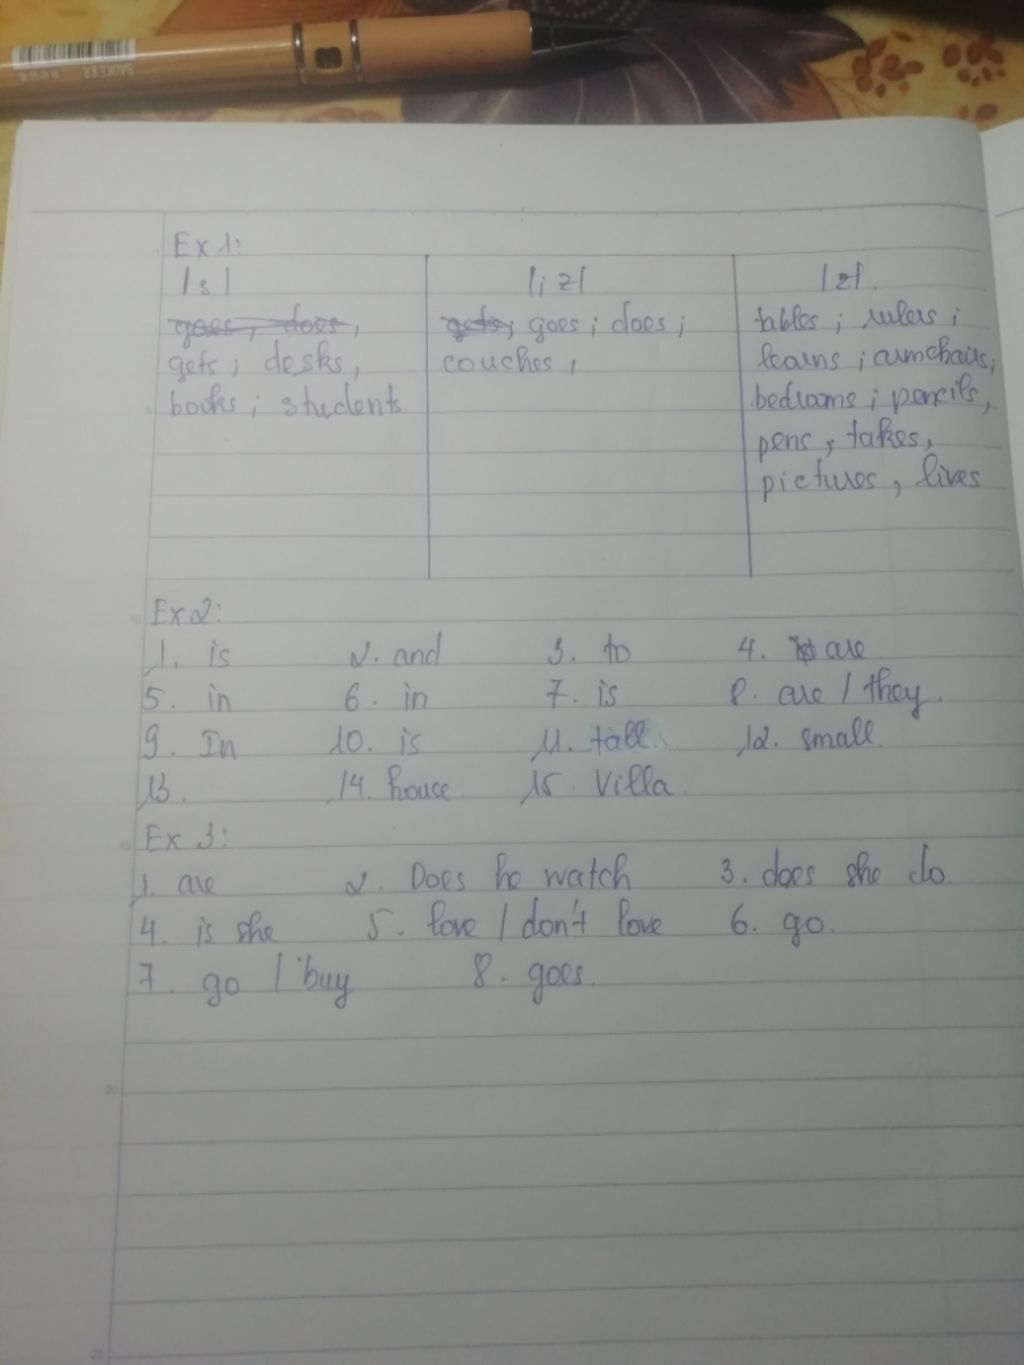 Ex 1:
/s/ /iz/ /z/
goes, does, gets; goes; does; tables; rulers;
gets; desks, couches, learns; armchairs;
books; students. bedrooms; pencils,
pens, takes,
pictures, lives
Ex 2:
1. is 2. and 3. to 4. are
5. in 6. in 7. is 8. are / they.
9. In 10. is 11. tall. 12. small.
13. 14. house 15. Villa.
Ex 3:
1. are 2. Does he watch 3. does she do
4. is she 5. love / don't love 6. go.
7. go / buy 8. goes.